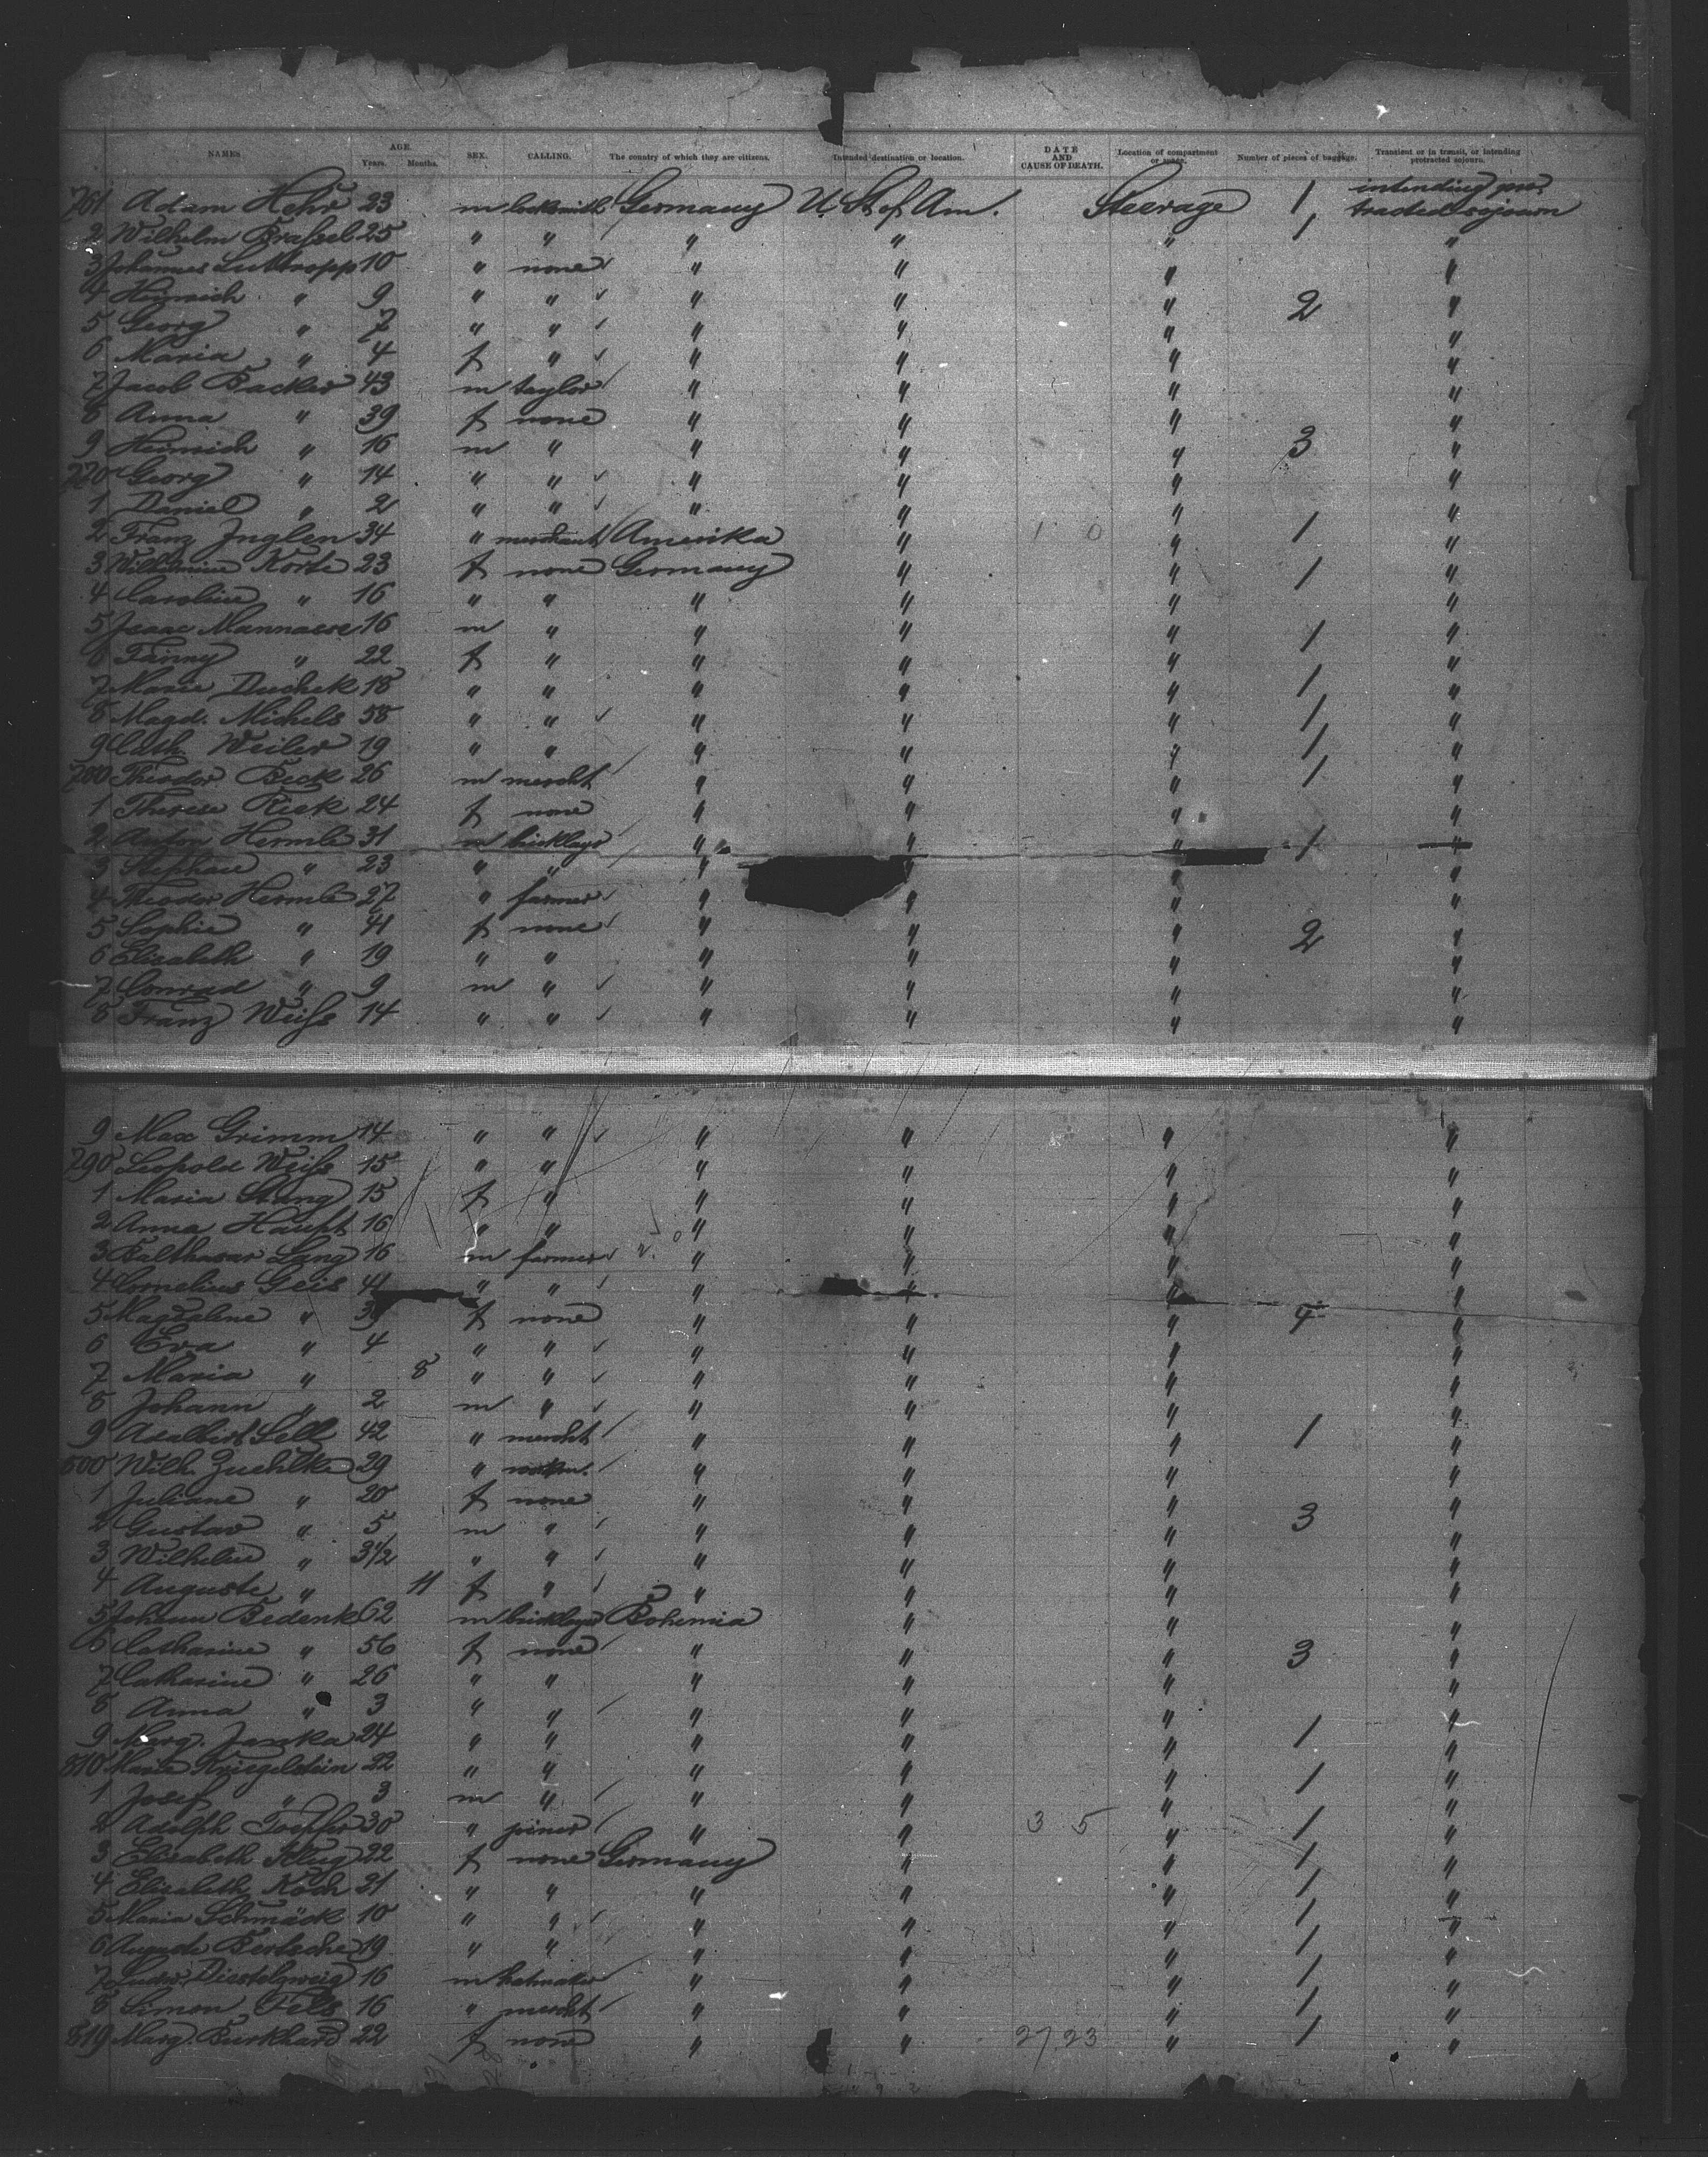 NAMES AGE. Years. Months. SEX. CALLING. The country of which they are citizens. Intended destination or location. DATE AND CAUSE OF DEATH. Location of compartment or space. Number of pieces of baggage. Transient or in transit, or intending protracted sojourn.
761 Adam Hehr 23 m locksmith Germany U. St. of Am. Steerage 1 intending pro-
tracted sojourn
2 Wilhelm Braßel 25 " " " " " 1 "
3 Johannes Luttropp 10 " none " " " "
4 Heinrich " 9 " " " " " 2 "
5 Georg " 7 " " " " " "
6 Maria " 4 f " " " " "
7 Jacob Backer 43 m taylor " " " "
8 Anna " 39 f none " " " "
9 Heinrich " 16 m " " " " 3 "
770 Georg " 14 " " " " " "
1 Daniel " 2 " " " " " "
2 Franz Inglen 34 " merchant Amerika " 1 0 " 1 "
3 Wilhelmine Korte 23 f none Germany " " 1 "
4 Caroline " 16 " " " " " "
5 Isaac Mannasse 16 m " " " " 1 "
6 Fanny " 22 f " " " " "
7 Marie Duchek 18 " " " " " 1 "
8 Magd. Michels 58 " " " " " 1 "
9 Cath. Weiler 19 " " " " " 1 "
780 Theodor Beck 26 m mercht " " " 1 "
1 Therese Rieck 24 f none " " " "
2 Anton Hermle 31 m bricklayr " " " 1 "
3 Stephan " 23 " " " " " "
4 Theodor Hermle 27 " farmer " " " "
5 Sophie " 41 f none " " " 2 "
6 Elisabeth " 19 " " " " " "
7 Conrad " 9 m " " " " "
8 Franz Weiß 14 " " " " " "
9 Max Grimm 14 " " " " " "
790 Leopold Weiß 15 " " " " " "
1 Maria Stang 15 f " " " " "
2 Anna Haupt 16 " " " " " "
3 Balthasar Lang 16 m farmer " " " "
4 Cornelius Geis 41 " " " " " "
5 Magdalene " f none " " " 4 "
6 Eva " 4 " " " " " "
7 Maria " 8 " " " " " "
8 Johann " 2 m " " " " "
9 Adalbert Sell 42 " mercht " " " 1 "
800 Wilh. Zuehlke 29 " " " " "
1 Juliane " 20 f none " " " "
2 Gustav " 5 m " " " " 3 "
3 Wilhelm " 3½ " " " " " "
4 Auguste " 11 f " " " " "
5 Johann Bedenk 62 m bricklayer Bohemia " " "
6 Catharine " 56 f none " " " 3 "
7 Catharine " 26 " " " " " "
8 Anna " 3 " " " " " "
9 Marg. Janka 24 " " " " " 1 "
810 Maria Kriegelstein 22 " " " " " 1 "
1 Josef " 3 m " " " " "
2 Adolph Toepfer 30 " joiner " " 3 5 " 1 "
3 Elisabeth Klug 22 f none Germany " " 1 "
4 Elisabeth Koch 21 " " " " " 1 "
5 Maria Schmäck 10 " " " " " 1 "
6 Auguste Bertsche 19 " " " " " 1 "
7 Ludw. Diestelzweig 16 m hatmaker " " " 1 "
8 Simon Fels 16 " mercht " " " 1 "
819 Marg. Burkhard 22 f none " " 27 23 " 1 "